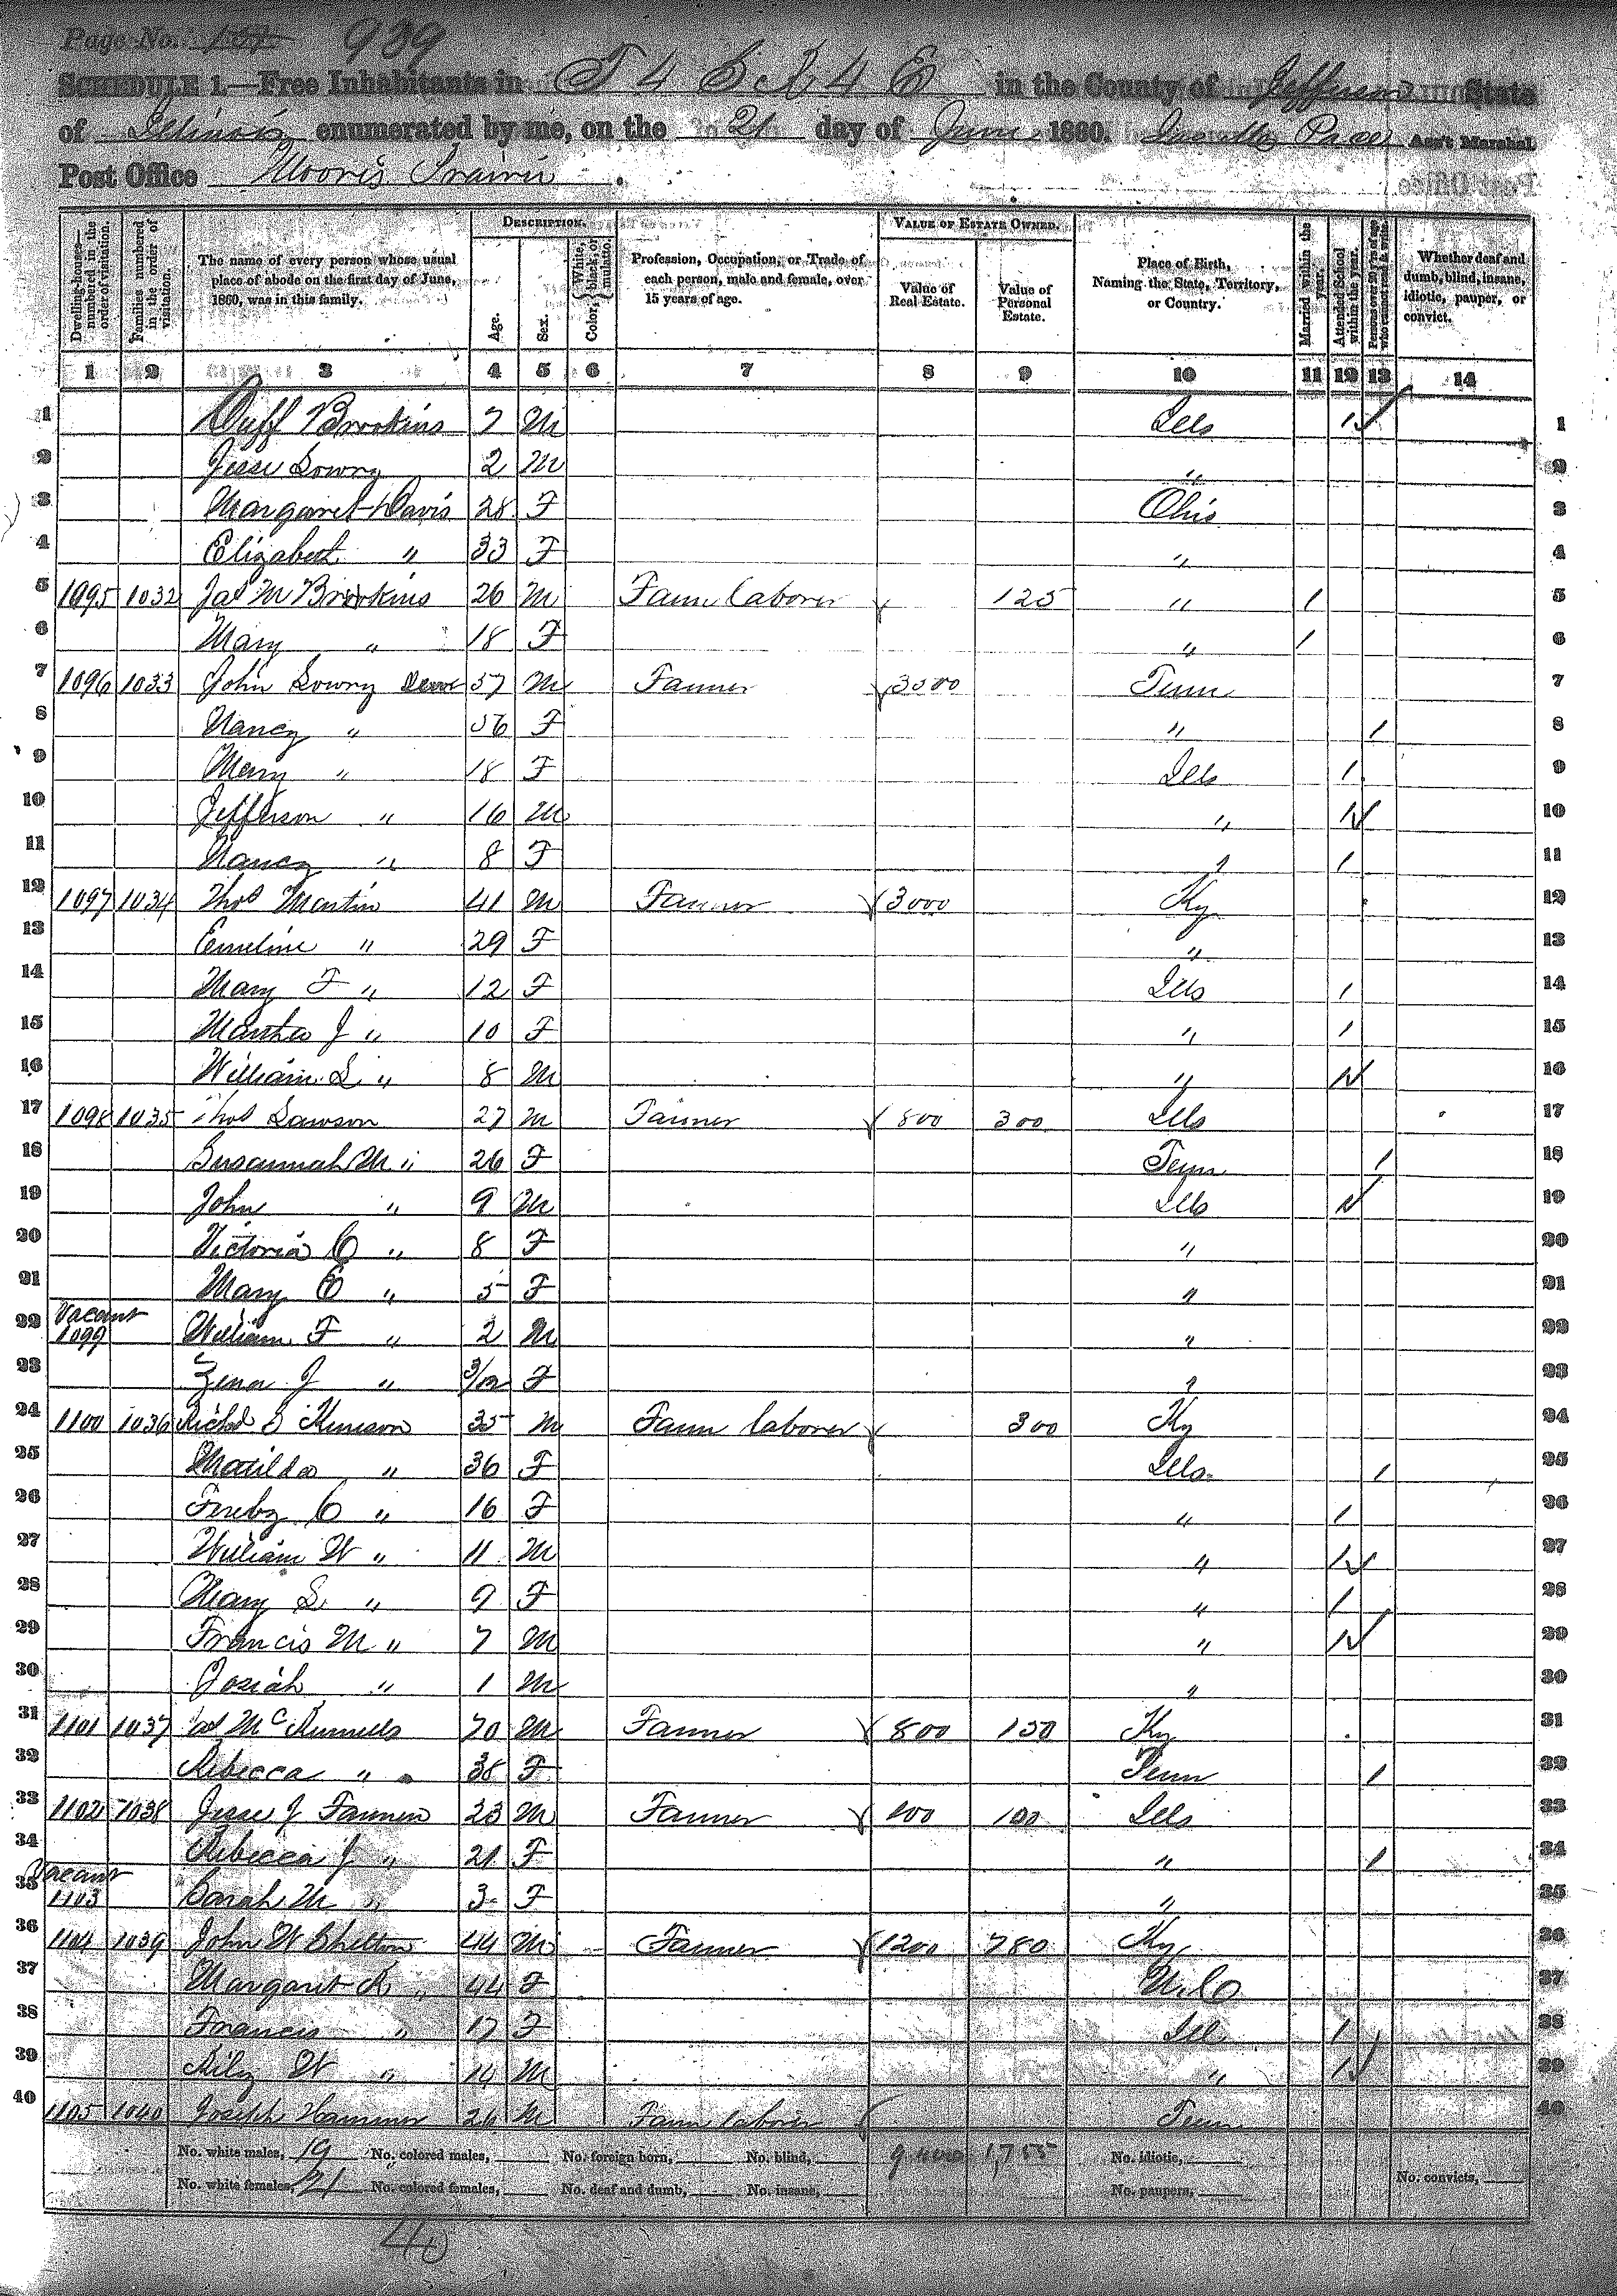 Page No. 137 939
SCHEDULE 1.—Free Inhabitants in T 4 S R 4 E in the County of Jefferson State
of Illinois enumerated by me, on the 21 day of June 1860. Ass't Marshal
Post Office Moores Prairie.
Dwelling-house—numbered in the order of visitation. Families numbered in the order of visitation. The name of every person whose usual place of abode on the first day of June, 1860, was in this family. DESCRIPTION. Age. Sex. Color, White, black, or mulatto. Profession, Occupation, or Trade of each person, male and female, over 15 years of age. VALUE OF ESTATE OWNED. Value of Real Estate. Value of Personal Estate. Place of Birth, Naming the State, Territory, or Country. Married within the year. Attended School within the year. Persons over 20 y'rs of age who cannot read & write. Whether deaf and dumb, blind, insane, idiotic, pauper, or convict.
1 2 3 4 5 6 7 8 9 10 11 12 13 14
1 Duff Brookins 7 M Ills 1 1
2 Jesse Lowry 2 M " 2
3 Margaret Davis 28 F Ohio 3
4 Elizabeth " 33 F " 4
5 1095 1032 Jas M Brookins 26 M Farm laborer 125 " 1 5
6 Mary " 18 F " 1 6
7 1096 1033 John Lowry 57 M Farmer 3500 Tenn 7
8 Nancy " 56 F " 1 8
9 Mary " 18 F Ills 1 9
10 Jefferson " 16 M " 1 10
11 Nancy " 8 F " 1 11
12 1097 1034 Thos Martin 41 M Farmer 3000 Ky 12
13 Emeline " 29 F " 13
14 Mary F " 12 F Ills 1 14
15 Martha J " 10 F " 1 15
16 William S. " 8 M " 1 16
17 1098 1035 Thos Lawson 27 M Farmer 800 300 Ills 17
18 Susannah M " 26 F Tenn 1 18
19 John " 9 M Ills 1 19
20 Victoria C " 8 F " 20
21 Mary E " 5 F " 21
Vacant
22 1099 William F " 2 M " 22
23 Zena J " 3/12 F " 23
24 1100 1036 Richd S Kinison 35 M Farm laborer 300 Ky 24
25 Matilda " 36 F Ills 1 25
26 Fereby C " 16 F " 1 26
27 William W " 11 M " 1 27
28 Mary S. " 9 F " 1 28
29 Francis M " 7 M " 1 29
30 Josiah " 1 M " 30
31 1101 1037 Jas 70 M Farmer 800 150 Ky 31
32 Rebecca " 38 F Tenn 1 32
33 1102 1038 Jesse J 23 M Farmer 100 100 Ills 33
34 Rebecca J " 21 F " 1 34
Vacant
35 1103 Sarah M " 3 F " 35
36 1104 1039 John W Shelton 44 M Farmer 1200 780 Ky 36
37 Margaret R " 44 F N.C 37
38 Francis " 17 F Ill 1 38
39 Riley W " 14 M " 1 39
40 1105 1040 Joseph Hammer 26 M Farm laborer Tenn 40
No. white males, 19 No. colored males, No. foreign born, No. blind, 9,400 1,755 No. idiotic,
No. white females, 21 No. colored females, No. deaf and dumb, No. insane, No. paupers, No. convicts,
40